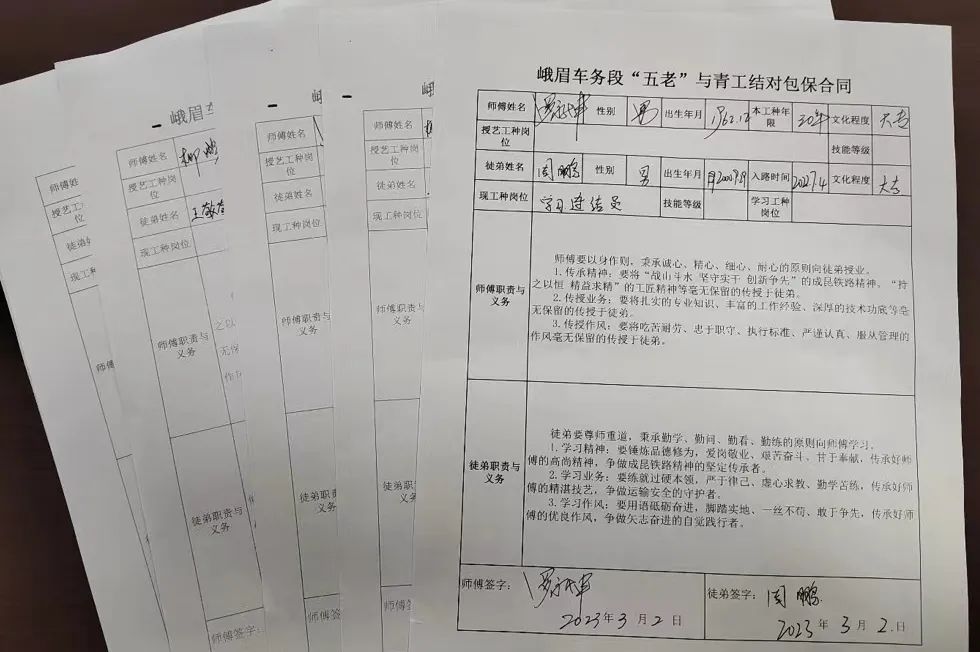 峨眉车务段“五老”与青工结对包保合同
师傅姓名 性别 男 出生年月 1962.12 本工种年限 30年 文化程度 大专
授艺工种岗位 技能等级
徒弟姓名 周鹏 性别 男 出生年月 入路时间 2022.7.4 文化程度 大专
现工种岗位 学习连结员 技能等级 学习工种岗位
师傅职责与义务
师傅要以身作则，秉承诚心、精心、细心、耐心的原则向徒弟授业。
1.传承精神：要将“战山斗水 坚守实干 创新争先”的成昆铁路精神，“持
之以恒 精益求精”的工匠精神等毫无保留的传授于徒弟。
2.传授业务：要将扎实的专业知识、丰富的工作经验、深厚的技术功底等毫
无保留的传授于徒弟。
3.传授作风：要将吃苦耐劳、忠于职守、执行标准、严谨认真、服从管理的
作风毫无保留的传授于徒弟。
徒弟职责与义务
徒弟要尊师重道，秉承勤学、勤问、勤看、勤练的原则向师傅学习。
1.学习精神：要锤炼品德修为，爱岗敬业、艰苦奋斗、甘于奉献，传承好师
傅的高尚精神，争做成昆铁路精神的坚定传承者。
2.学习业务：要练就过硬本领，严于律己、虚心求教、勤学苦练，传承好师
傅的精湛技艺，争做运输安全的守护者。
3.学习作风：要用语砥砺奋进，脚踏实地、一丝不苟、敢于争先，传承好师
傅的优良作风，争做矢志奋进的自觉践行者。
师傅签字：
2023年3月2日
徒弟签字：周鹏
2023年3月2.日
峨
师傅姓名
授艺工种岗位
徒弟姓名
现工种岗位
师傅职责与义务
徒弟职责与义务
师傅签
峨
师傅姓名
授艺工种岗位
徒弟姓名
现工种岗位
师傅职责与义务
徒弟职责与义务
师傅签字
峨眉车
师傅姓名 柳
授艺工种岗位
徒弟姓名 王
现工种岗位
师傅职责与义务
之以
无保
作风
徒弟职责与义务
师傅签字：
师傅姓
授艺工位
徒弟姓
现工种
师傅